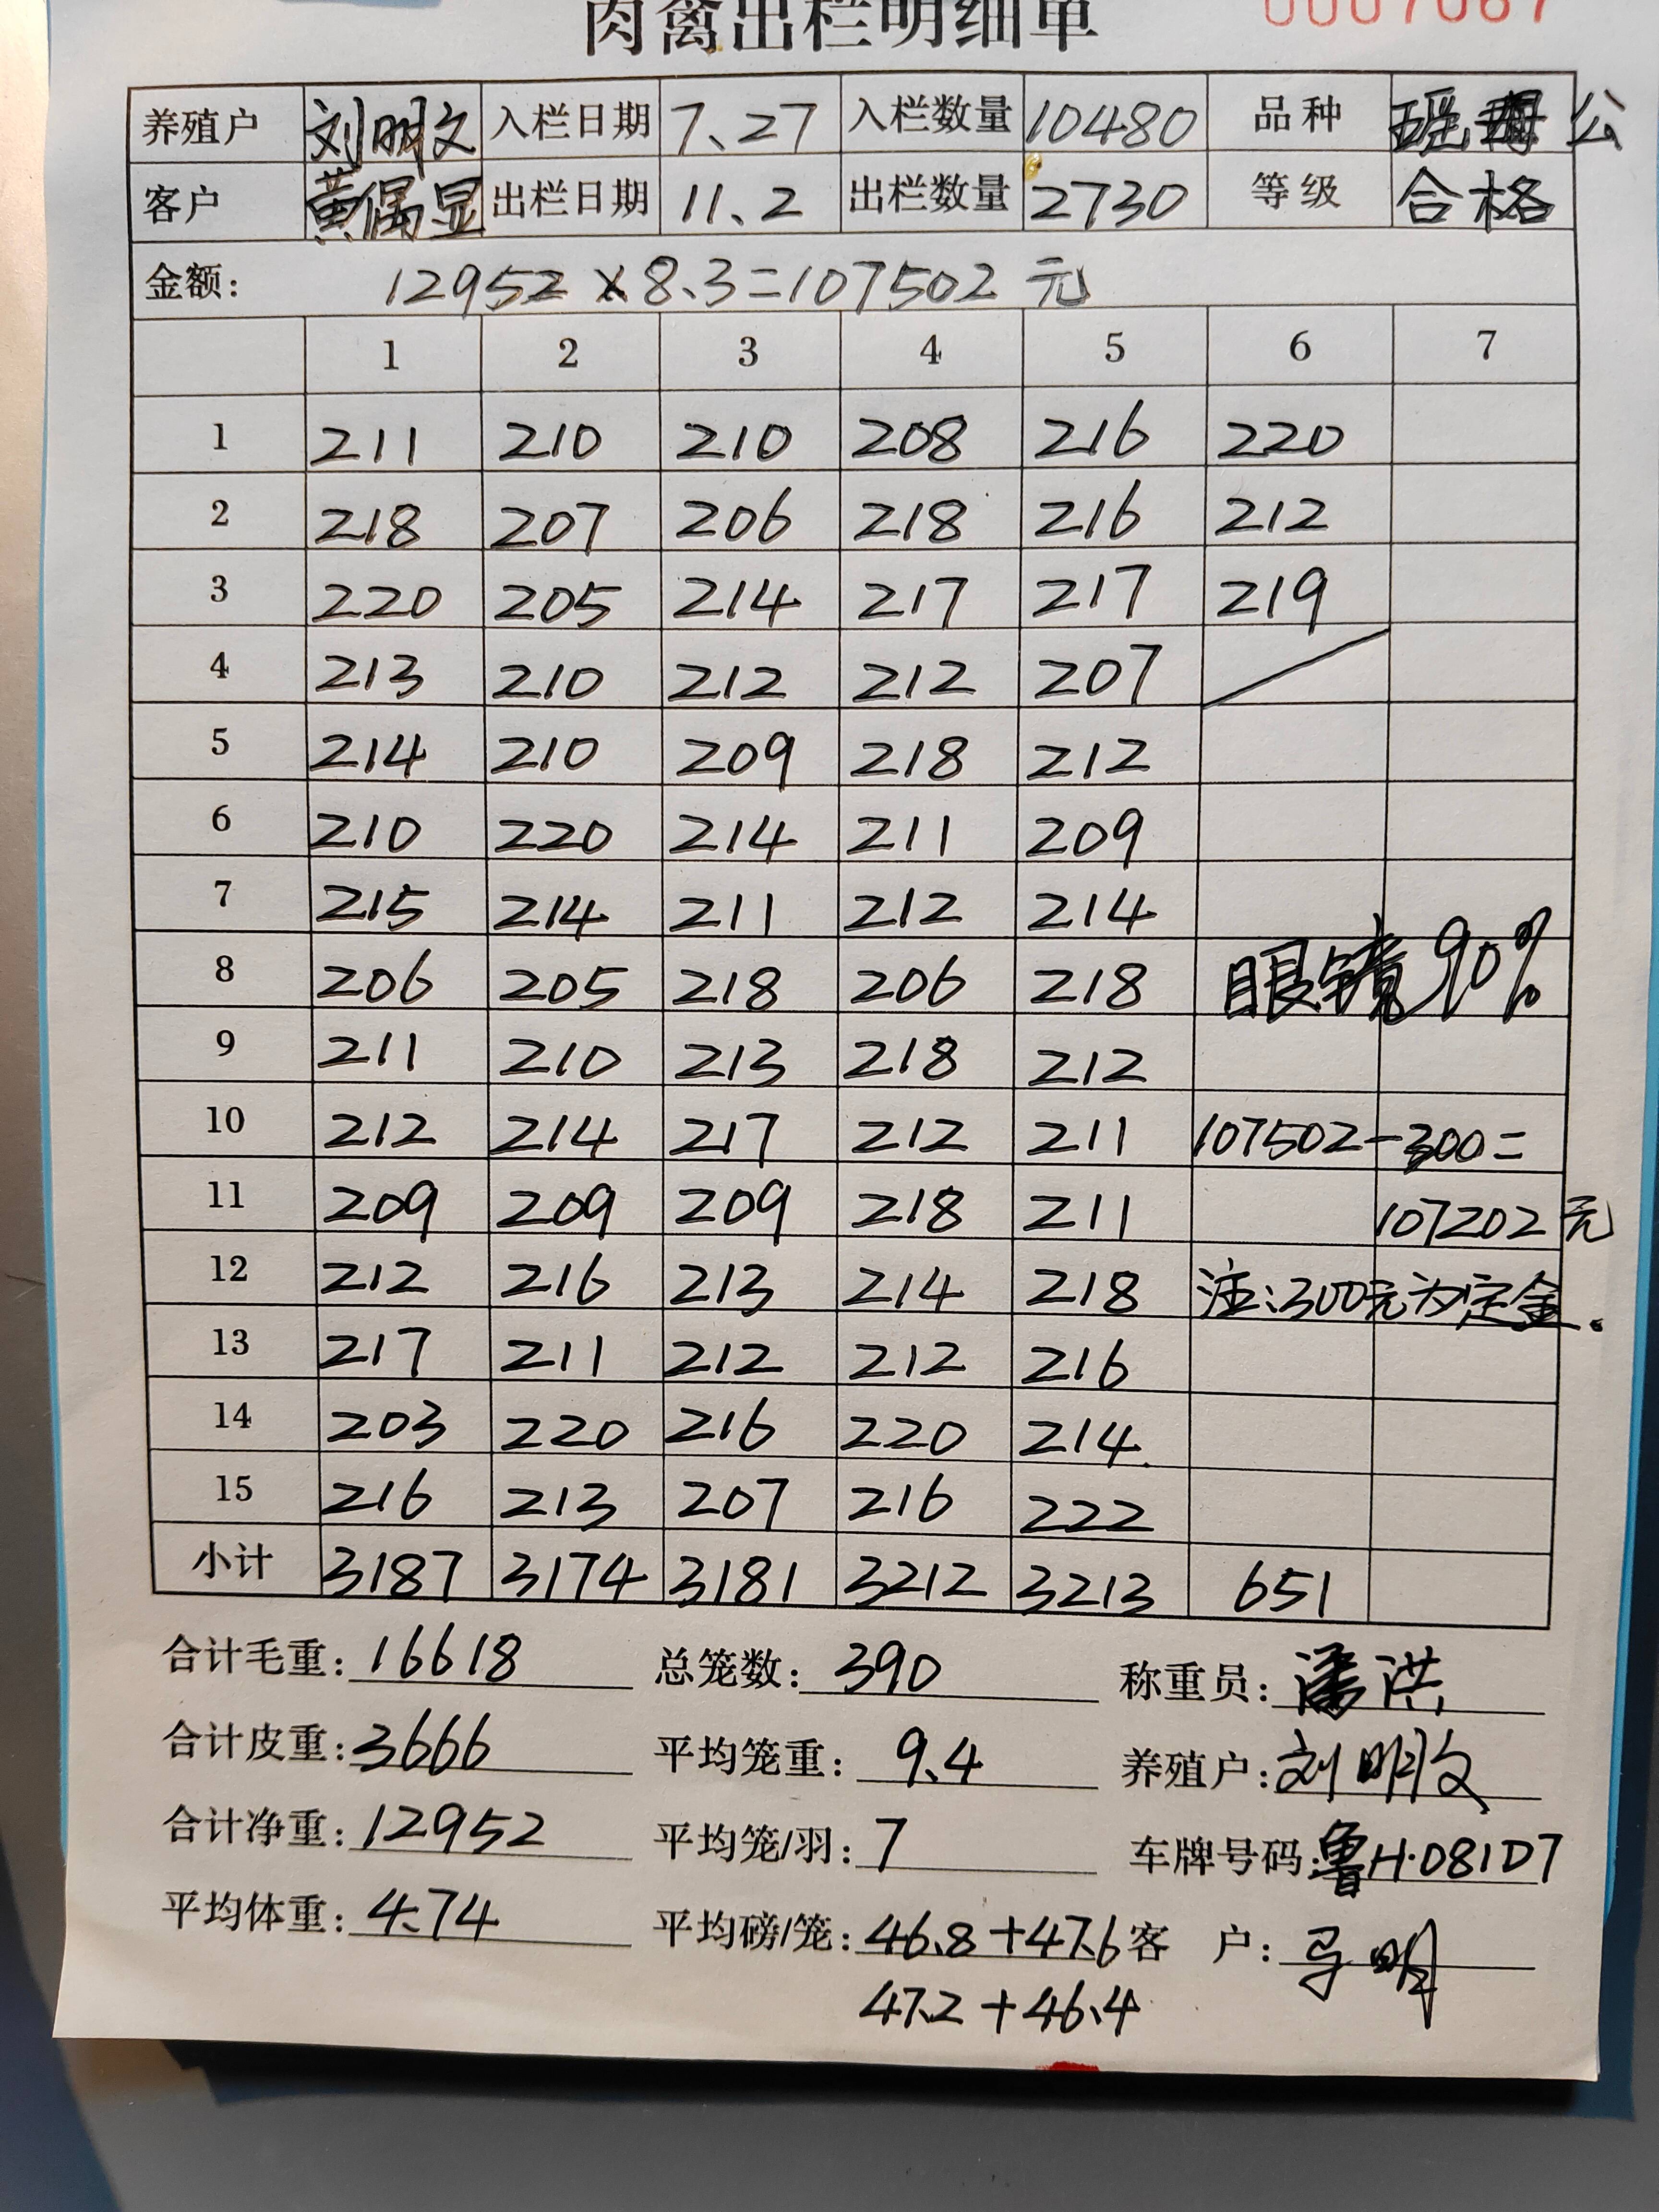 肉禽出栏明细单 0007067
养殖户 刘明文 入栏日期 7、27 入栏数量 10480 品种 瑶 公
客户 黄偶显 出栏日期 11、2 出栏数量 2730 等级 合格
金额: 12952×8、3=107502元
1 2 3 4 5 6 7
1 211 210 210 208 216 220
2 218 207 206 218 216 212
3 220 205 214 217 217 219
4 213 210 212 212 207
5 214 210 209 218 212
6 210 220 214 211 209
7 215 214 211 212 214
8 206 205 218 206 218 眼镜90%
9 211 210 213 218 212
10 212 214 217 212 211 107502-300=
11 209 209 209 218 211 107202元
12 212 216 213 214 218 注:300元为定金。
13 217 211 212 212 216
14 203 220 216 220 214
15 216 213 207 216 222
小计 3187 3174 3181 3212 3213 651
合计毛重: 16618 总笼数: 390 称重员: 潘洪
合计皮重: 3666 平均笼重: 9、4 养殖户: 刘明文
合计净重: 12952 平均笼/羽: 7 车牌号码: 鲁H·081D7
平均体重: 4、74 平均磅/笼: 46、8+47、6 客户: 马明
47、2+46、4